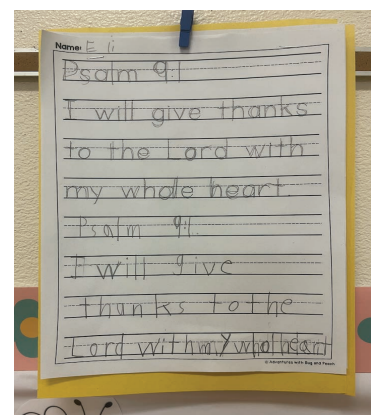 Name: Eli
Psalm 9:1
I will give thanks
to the Lord with
my whole heart.
Psalm 9:1.
I will give
thanks to the
Lord with my whol heart
© Adventures with Bug and Peach